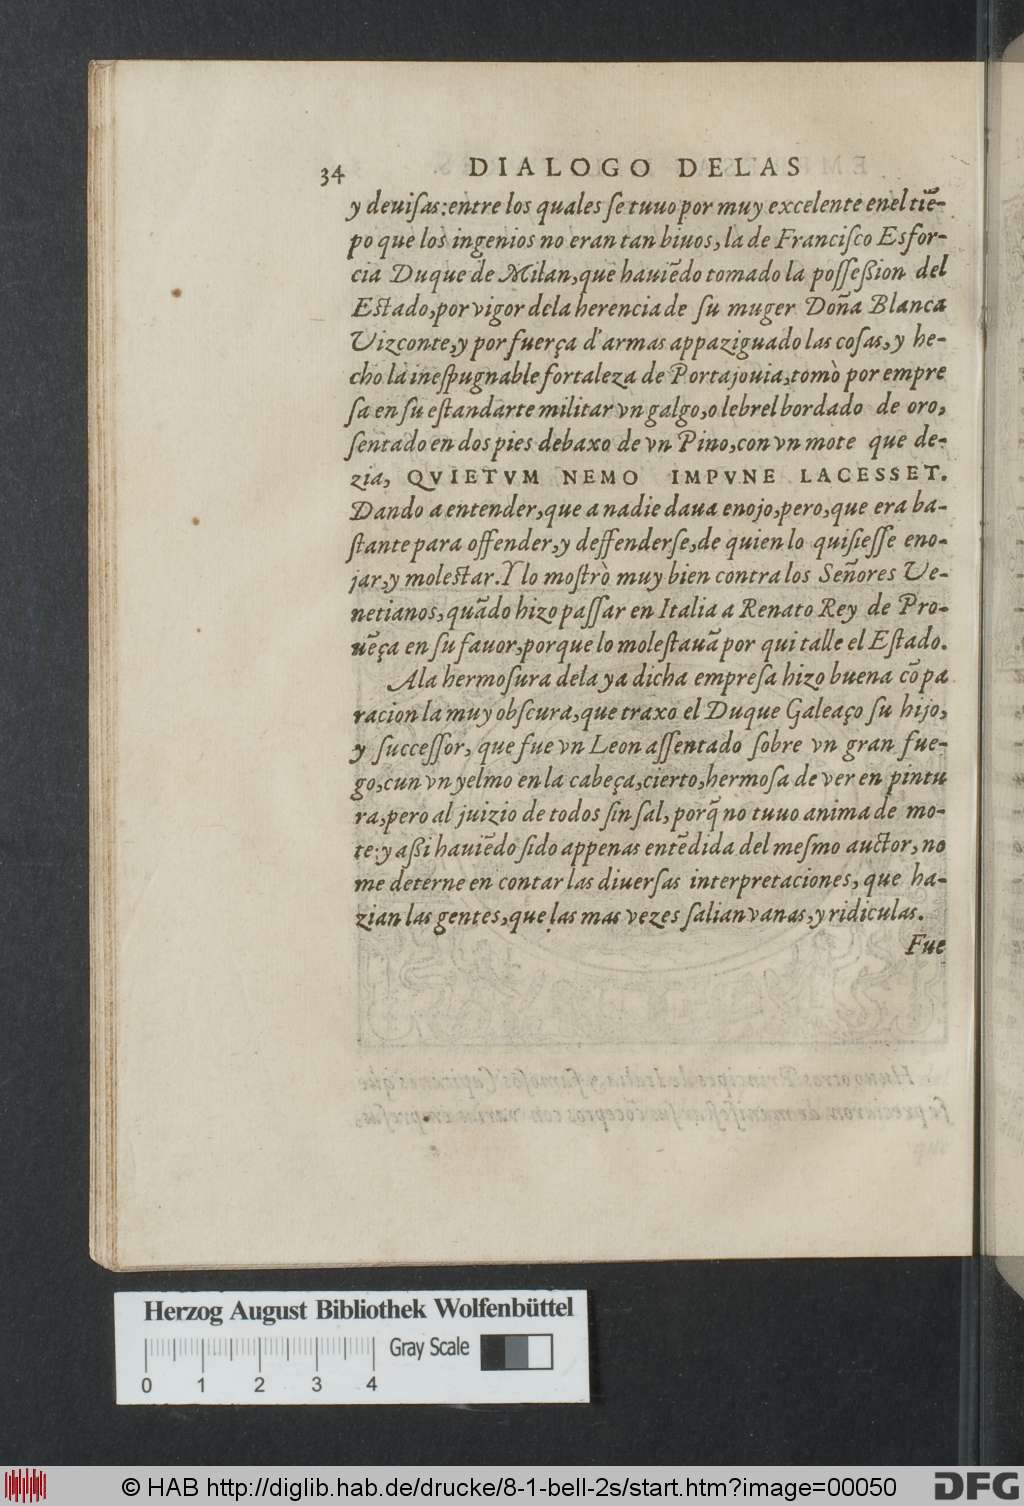 34 DIALOGO DELAS
y deuiſas: entre los quales ſe tuuo por muy excelente enel tiẽ-
po que los ingenios no eran tan biuos, la de Franciſco Esfor-
cia Duque de Milan, que hauiẽdo tomado la poſſeßion del
Eſtado, por vigor dela herencia de ſu muger Doña Blanca
Vizconte, y por fuerça d'armas appaziguado las coſas, y he-
cho la ineſpugnable fortaleza de Portajouia, tomò por empre
ſa en ſu eſtandarte militar vn galgo, o lebrel bordado de oro,
ſentado en dos pies debaxo de vn Pino, con vn mote que de-
zia, QVIETVM NEMO IMPVNE LACESSET.
Dando a entender, que a nadie daua enojo, pero, que era ba-
ſtante para offender, y deffenderſe, de quien lo quiſieſſe eno-
jar, y moleſtar. Y lo moſtrò muy bien contra los Señores Ve-
netianos, quãdo hizo paſſar en Italia a Renato Rey de Pro-
uẽça en ſu fauor, porque lo moleſtauã por qui talle el Eſtado.
Ala hermoſura dela ya dicha empreſa hizo buena cõpa
racion la muy obſcura, que traxo el Duque Galeaço ſu hijo,
y ſucceſſor, que fue vn Leon aſſentado ſobre vn gran fue-
go, cun vn yelmo en la cabeça, cierto, hermoſa de ver en pintu
ra, pero al juizio de todos ſin ſal, porq̃ no tuuo anima de mo-
te: y aßi hauiẽdo ſido appenas entẽdida del meſmo auctor, no
me deterne en contar las diuerſas interpretaciones, que ha-
zian las gentes, que las mas vezes ſalian vanas, y ridiculas.
Fue
Herzog August Bibliothek Wolfenbüttel
Gray Scale
0 1 2 3 4
© HAB http://diglib.hab.de/drucke/8-1-bell-2s/start.htm?image=00050
DFG